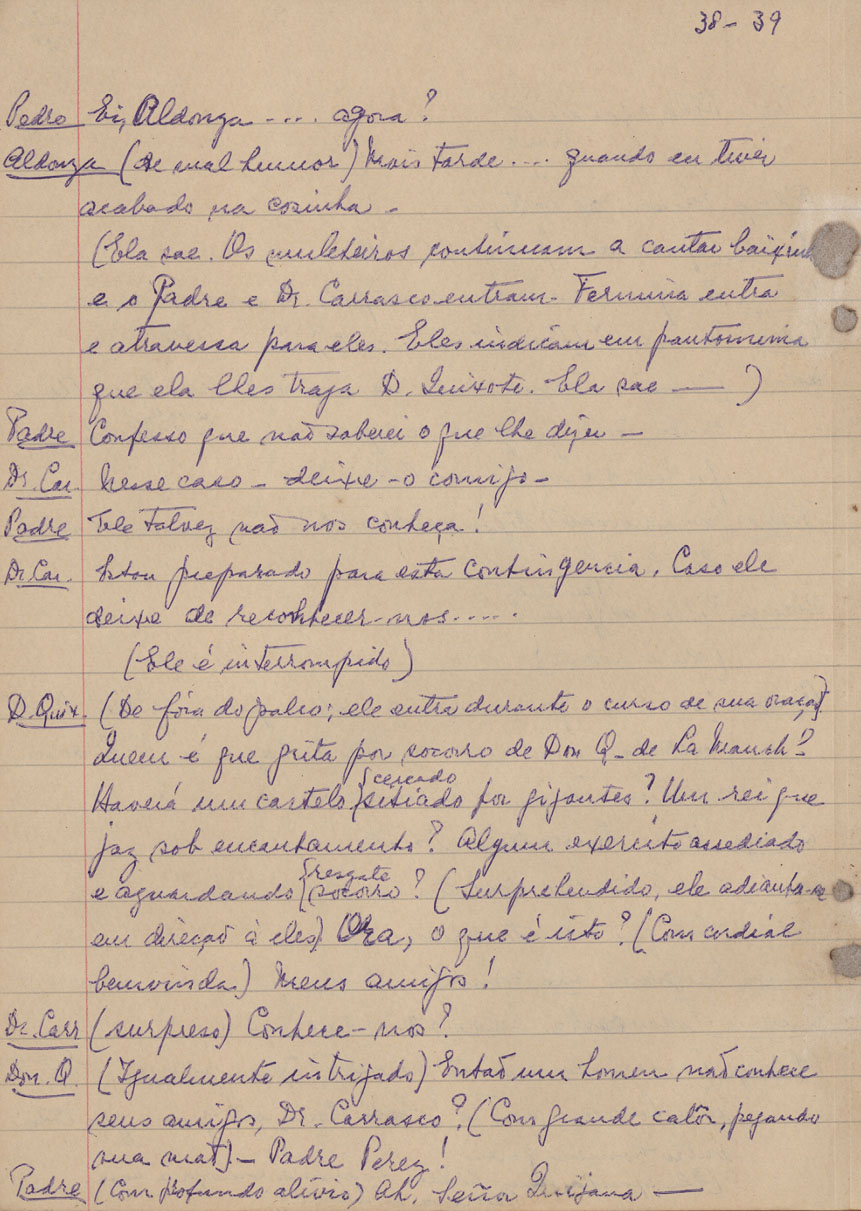 38 - 39
Pedro Ei, Aldonza -.... agora?
Aldonza (de mal humor) Mais tarde .... quando eu tiver
acabado na cosinha -
(Ela sae. Os muleteiros continuam a cantar baixinho
e o Padre e Dr. Carrasco entram - Fermina entra
e atravessa para eles. Eles indicam em pantomima
que ela lhes traga D. Quixote. Ela sae —— )
Padre Confesso que não saberei o que lhe dizer —
Dr. Car. Nesse caso - deixe-o comigo -
Padre Ele talvez não nos conheça!
Dr Car. Estou preparado para esta contingencia. Caso ele
deixe de reconhecer-nos.....
(Ele é interrompido)
D. Quix. (De fóra do palco; ele entra durante o curso de sua oração)
Quem é que grita por socorro de Don Q. de La Manch?
Haverá um castelo {cercado
sitiado por gigantes? Um rei que
jaz sob encantamento? Algum exercito assediado
e aguardando {resgate
socorro? (Surprehendido, ele adianta-se
em direção à eles) Ora, o que é isto? (Com cordial
benvinda) Meus amigos!
Dr. Carr (surpreso) Conhece-nos?
Don. Q. (Igualmente intrigado) Então um homem não conhece
seus amigos, Dr. Carrasco? (Com grande calôr, pegando
sua mão) - Padre Perez!
Padre (Com profundo alivio) Ah, Señor Quijana —